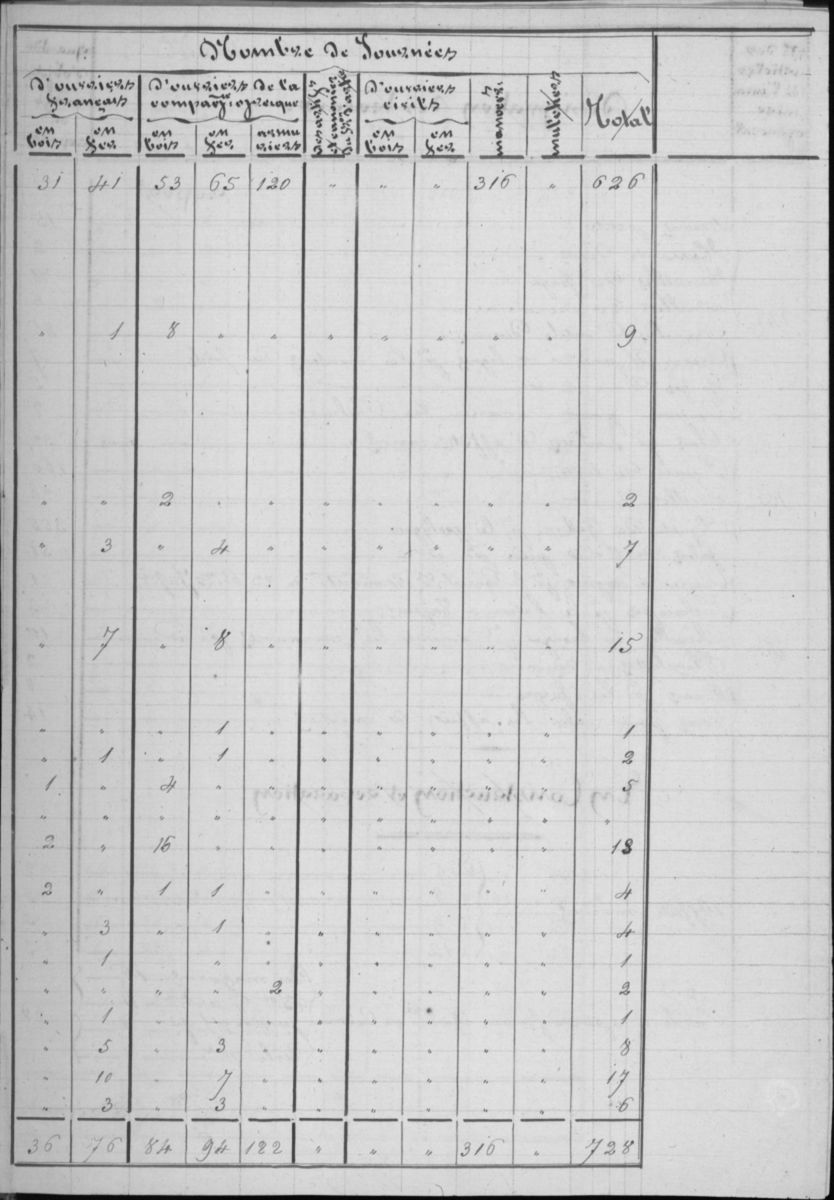 Nombre de Journées
d'ouvriers français d'ouvriers de la d'ouvriers civils manœuvres Total
en bois en fer en bois en fer armuriers en bois en fer
31 41 53 65 120 " " " 316 " 626
" 1 8 " " " " " " " 9
" " 2 " " " " " " " 2
" 3 " 4 " " " " " " 7
" 7 " 8 " " " " " " 15
" " " 1 " " " " " " 1
" 1 " 1 " " " " " " 2
1 " 4 " " " " " " " 5
" " " " " " " " " " "
2 " 16 " " " " " " " 18
2 " 1 1 " " " " " " 4
" 3 " 1 " " " " " " 4
" 1 " " " " " " " " 1
" " " " 2 " " " " " 2
" 1 " " " " " " " " 1
" 5 " 3 " " " " " " 8
" 10 " 7 " " " " " " 17
" 3 " 3 " " " " " " 6
36 76 84 94 122 " " " 316 " 728